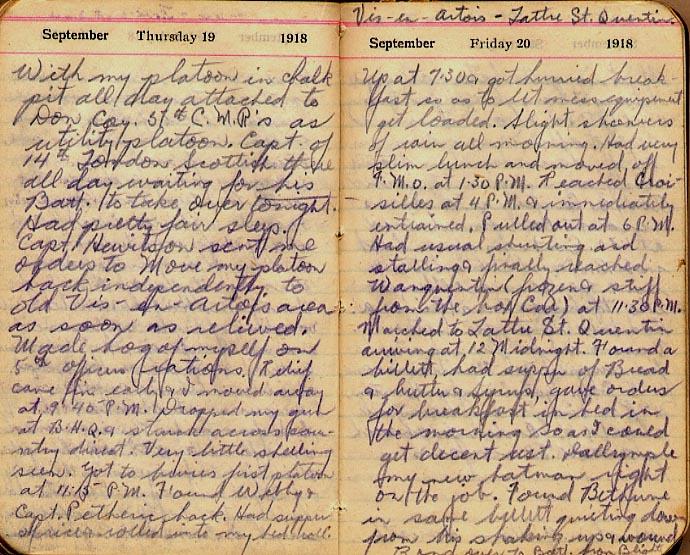 September Thursday 19 1918
With my platoon in chalk
pit all day attached to
Don Coy. 5th C.M.R's as
utility platoon. Capt. of
14th London Scottish there
all day waiting for his
Batt. to take over tonight.
Had pretty fair sleep.
Capt. Hewitson sent me
orders to Move my platoon
back independently to
old Vis-en-Artois area
as soon as relieved.
Made hog of myself on
5th officers rations. Relief
came in early & I moved away
at 9:40 P.M. Dropped my gun
at B.H.Q. & struck across coun-
try direct. Very little shelling
seen. Got to bivvies first platoon
at 11:15 P.M. Found Webby &
Capt. Petheric back. Had supper
& rolled into my bed roll.
Vis-en-Artois - Lattre St. Quentin
September Friday 20 1918
Up at 7.30 & got hurried break-
fast so as to let mess equipment
get loaded. Slight showers
of rain all morning. Had very
slim lunch and moved off
P.M.O. at 1:30 P.M. Reached Croi-
silles at 4 P.M. & immediately
entrained. Pulled out at 6 P.M.
Had usual shunting and
stalling & finally reached
Wanquentin (frozen & stiff
from the box Car) at 11.30 P.M.
Marched to Lattre St. Quentin
arriving at 12 Midnight. Found a
billett, had supper of Bread
& butter & syrup, gave orders
for breakfast in bed in
the morning so as I could
get decent rest. Dallymple
my new batman right
on the job. Found Bethune
in same billett quieting down
from his shaking up & wound
over to Batt. from